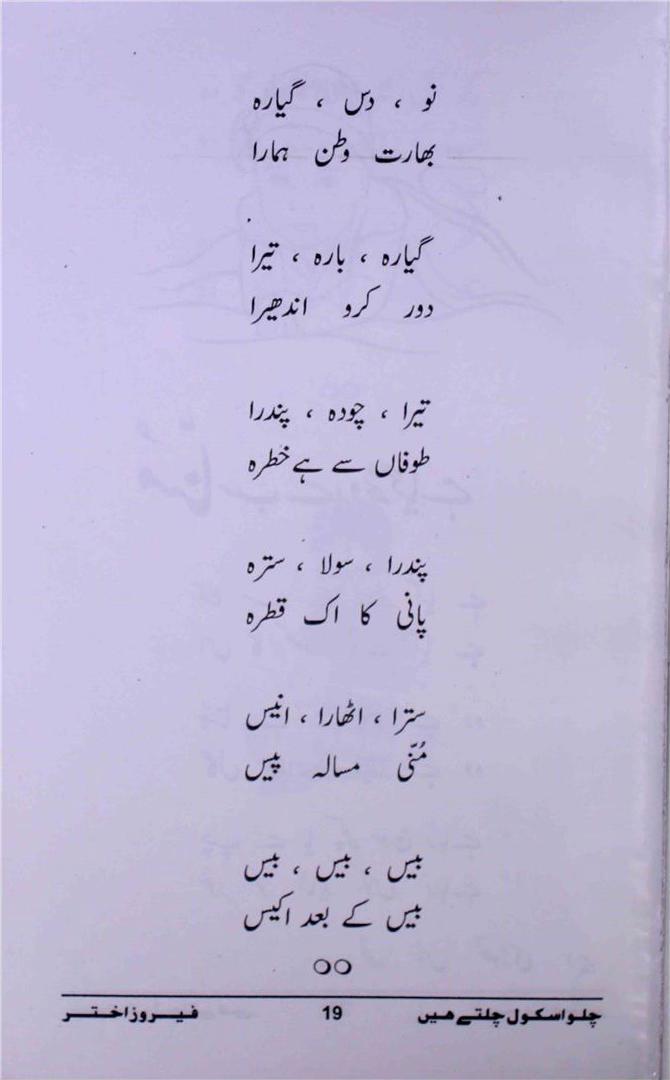 نو ، دس ، گیارہ
بھارت وطن ہمارا
گیارہ ، بارہ ، تیرا
دور کرو اندھیرا
تیرا ، چودہ ، پندرا
طوفاں سے ہے خطرہ
پندرا ، سولا ، سترہ
پانی کا اک قطرہ
سترا ، اٹھارا ، انیس
مُنّی مسالہ پیس
بیس ، بیس ، بیس
بیس کے بعد اکیس
چلو اسکول چلتے ھیں 19 فیروز اختر